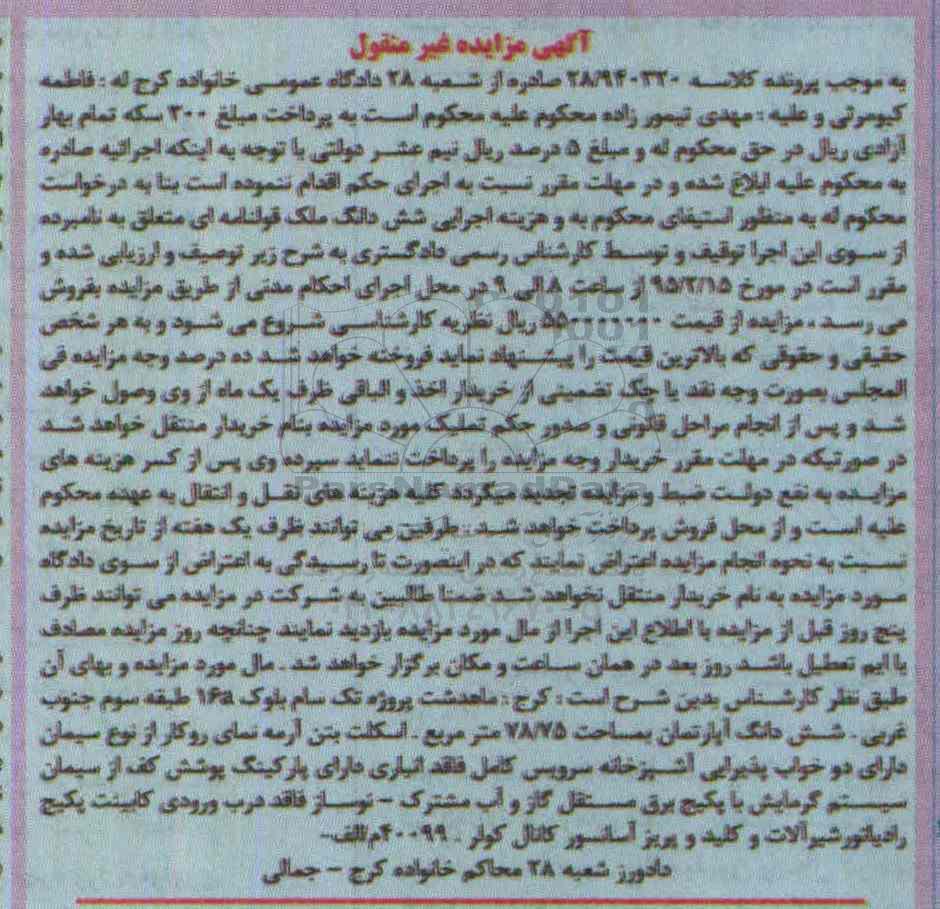 آگهی مزایده غیر منقول
به موجب پرونده کلاسه ۲۸/۹۴۰۳۲۰ صادره از شعبه ۲۸ دادگاه عمومی خانواده کرج له : فاطمه
کیومرثی و علیه : مهدی تیمور زاده محکوم علیه محکوم است به پرداخت مبلغ ۳۰۰ سکه تمام بهار
آزادی ریال در حق محکوم له و مبلغ ۵ درصد ریال نیم عشر دولتی با توجه به اینکه اجرائیه صادره
به محکوم علیه ابلاغ شده و در مهلت مقرر نسبت به اجرای حکم اقدام ننموده است بنا به درخواست
محکوم له به منظور استیفای محکوم به و هزینه اجرایی شش دانگ ملک قولنامه ای متعلق به نامبرده
از سوی این اجرا توقیف و توسط کارشناس رسمی دادگستری به شرح زیر توصیف و ارزیابی شده و
مقرر است در مورخ ۹۵/۲/۱۵ از ساعت ۸ الی ۹ در محل اجرای احکام مدنی از طریق مزایده بفروش
می رسد . مزایده از قیمت ریال نظریه کارشناسی شروع می شود و به هر شخص
حقیقی و حقوقی که بالاترین قیمت را پیشنهاد نماید فروخته خواهد شد ده درصد وجه مزایده فی
المجلس بصورت وجه نقد یا چک تضمینی از خریدار اخذ و الباقی ظرف یک ماه از وی وصول خواهد
شد و پس از انجام مراحل قانونی و صدور حکم تملیک مورد مزایده بنام خریدار منتقل خواهد شد
در صورتیکه در مهلت مقرر خریدار وجه مزایده را پرداخت ننماید سپرده وی پس از کسر هزینه های
مزایده به نفع دولت ضبط و مزایده تجدید میگردد کلیه هزینه های نقل و انتقال به عهده محکوم
علیه است و از محل فروش پرداخت خواهد شد . طرفین می توانند ظرف یک هفته از تاریخ مزایده
نسبت به نحوه انجام مزایده اعتراض نمایند که در اینصورت تا رسیدگی به اعتراض از سوی دادگاه
مورد مزایده به نام خریدار منتقل نخواهد شد ضمنا طالبین به شرکت در مزایده می توانند ظرف
پنج روز قبل از مزایده با اطلاع این اجرا از مال مورد مزایده بازدید نمایند چنانچه روز مزایده مصادف
با ایم تعطیل باشد روز بعد در همان ساعت و مکان برگزار خواهد شد . مال مورد مزایده و بهای آن
طبق نظر کارشناس بدین شرح است : کرج : ماهدشت پروژه تک سام بلوک ۱۶a طبقه سوم جنوب
غربی . شش دانگ آپارتمان بمساحت ۷۸/۷۵ متر مربع . اسکلت بتن آرمه نمای روکار از نوع سیمان
دارای دو خواب پذیرایی آشپزخانه سرویس کامل فاقد انباری دارای پارکینگ پوشش کف از سیمان
سیستم گرمایش با پکیج برق مستقل گاز و آب مشترک – نوساز فاقد درب ورودی کابینت پکیج
رادیاتور شیرآلات و کلید و پریز آسانسور کانال کولر . ۴۰۰۹۹م/الف–
دادورز شعبه ۲۸ محاکم خانواده کرج – جمالی
ParsNamadData